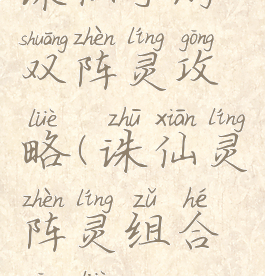 shuāng zhèn líng gōng
双阵灵攻
lüè zhū xiān líng
略(诛仙灵
zhèn líng zǔ hé
阵灵组合